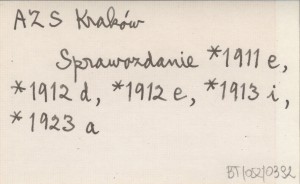 AZS Kraków
Sprawozdanie *1911 e,
*1912 d, *1912 e, *1913 i,
*1923 a
BT/052/0332